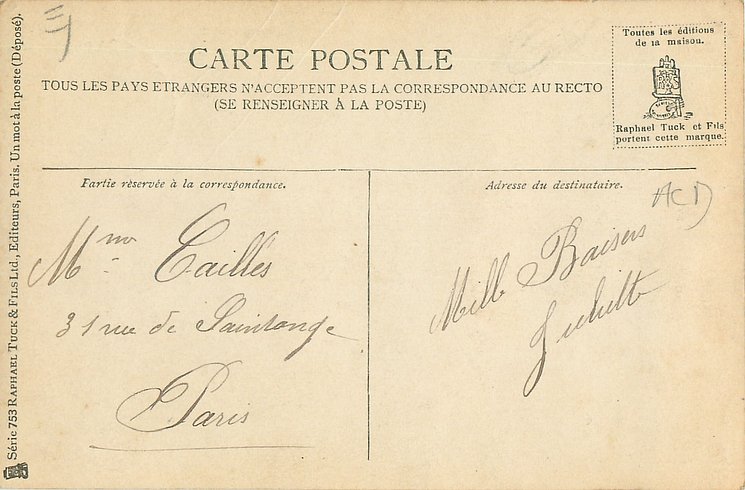 CARTE POSTALE
TOUS LES PAYS ETRANGERS N'ACCEPTENT PAS LA CORRESPONDANCE AU RECTO
(SE RENSEIGNER À LA POSTE)
Toutes les éditions
de la maison.
Raphael Tuck et Fils
portent cette marque.
Partie réservée à la correspondance.
Mme Caillès
31 rue de Saintonge
Paris
Adresse du destinataire.
ACD
Mille Baisers
Juliette
Série 753 RAPHAEL TUCK & FILS LTD., Editeurs, Paris. Un mot à la poste (Déposé).